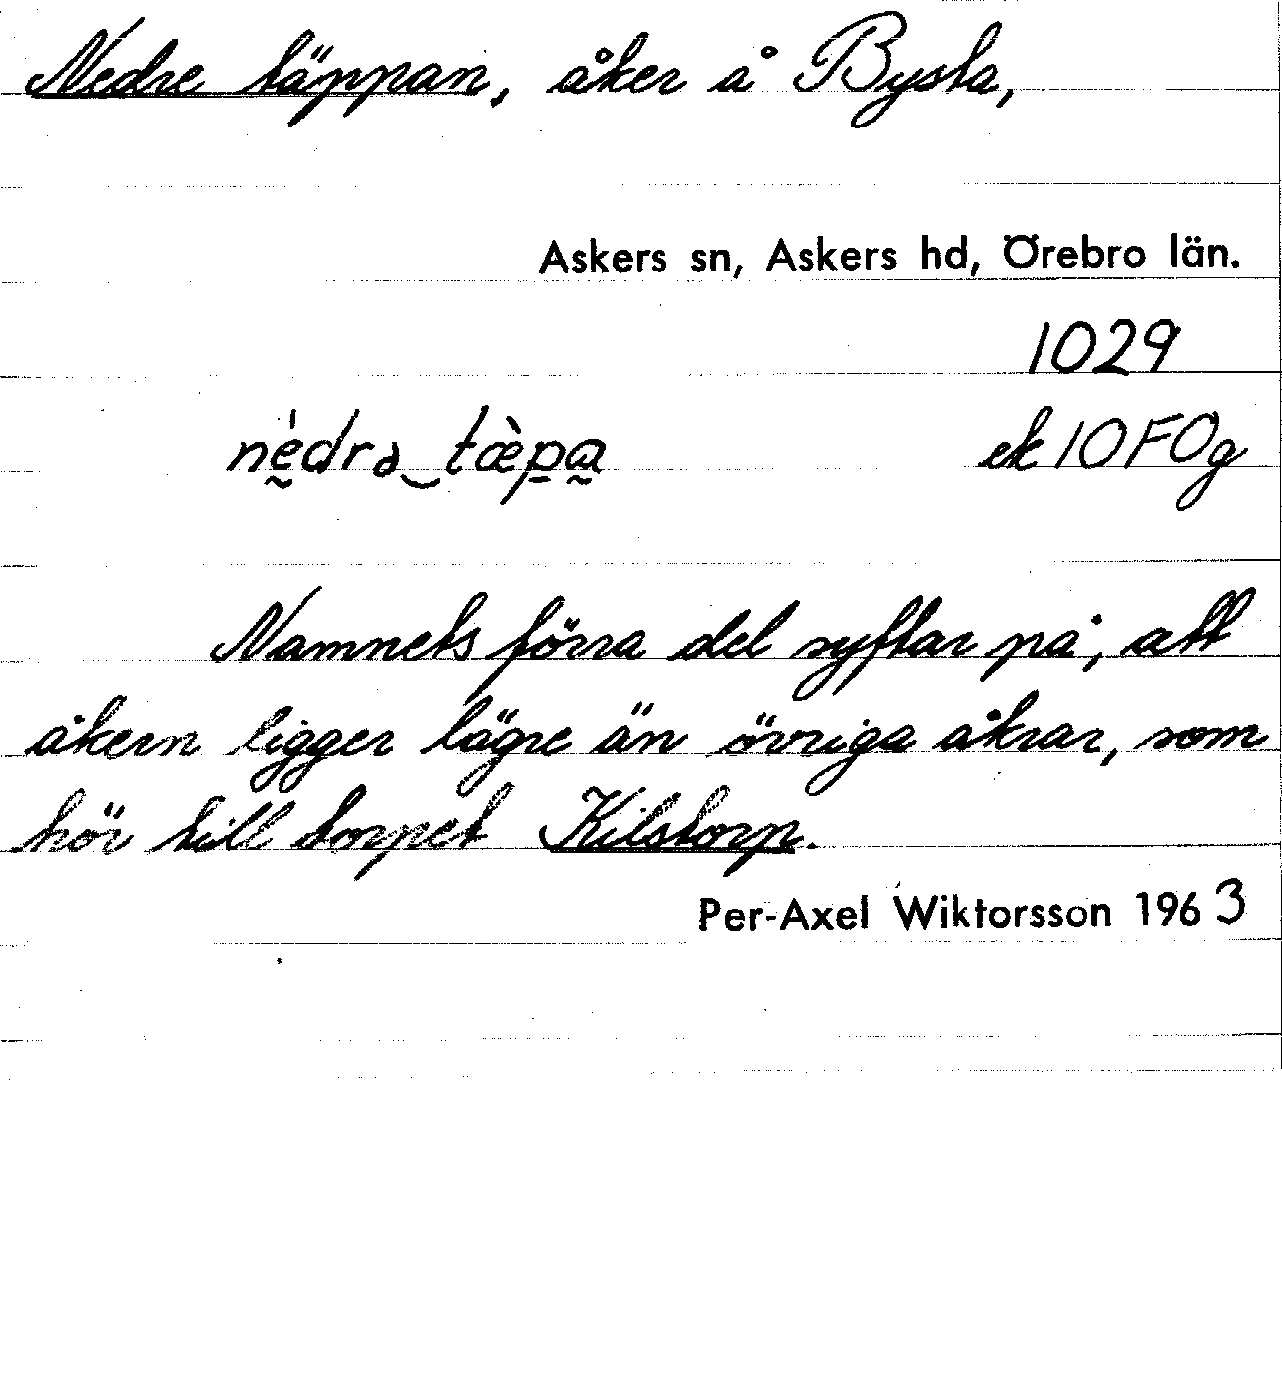 Nedre täppan, åker å Bysta,
Askers sn, Askers hd, Örebro län.
1029
nḛ̀drə‿tæ̀p̱a̰ ek 10 F Og
Namnets förra del syftar på, att
åkern ligger lägre än övriga åkrar, som
hör till torpet Kilstorp.
Per-Axel Wiktorsson 1963